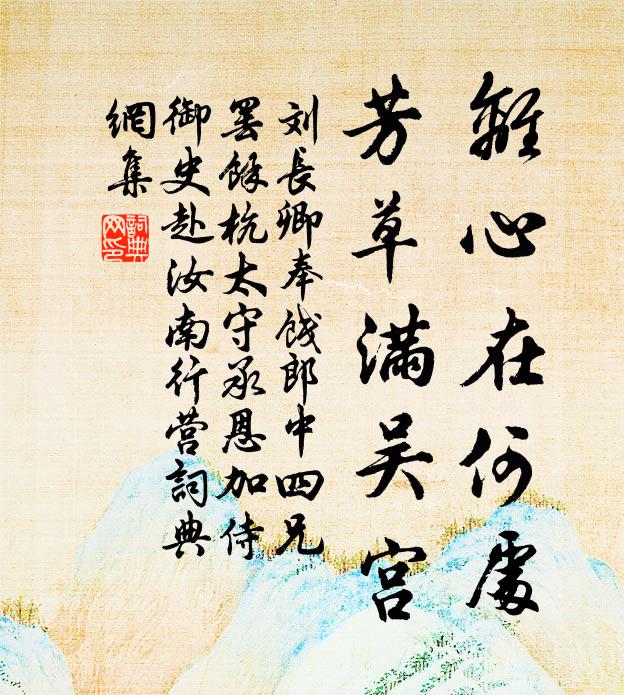 離心在何處
芳草滿吴宫
刘長卿奉餞郎中四兄
罢餘杭太守承恩加侍
御史赴汝南行营詞典
網集
詞典網印